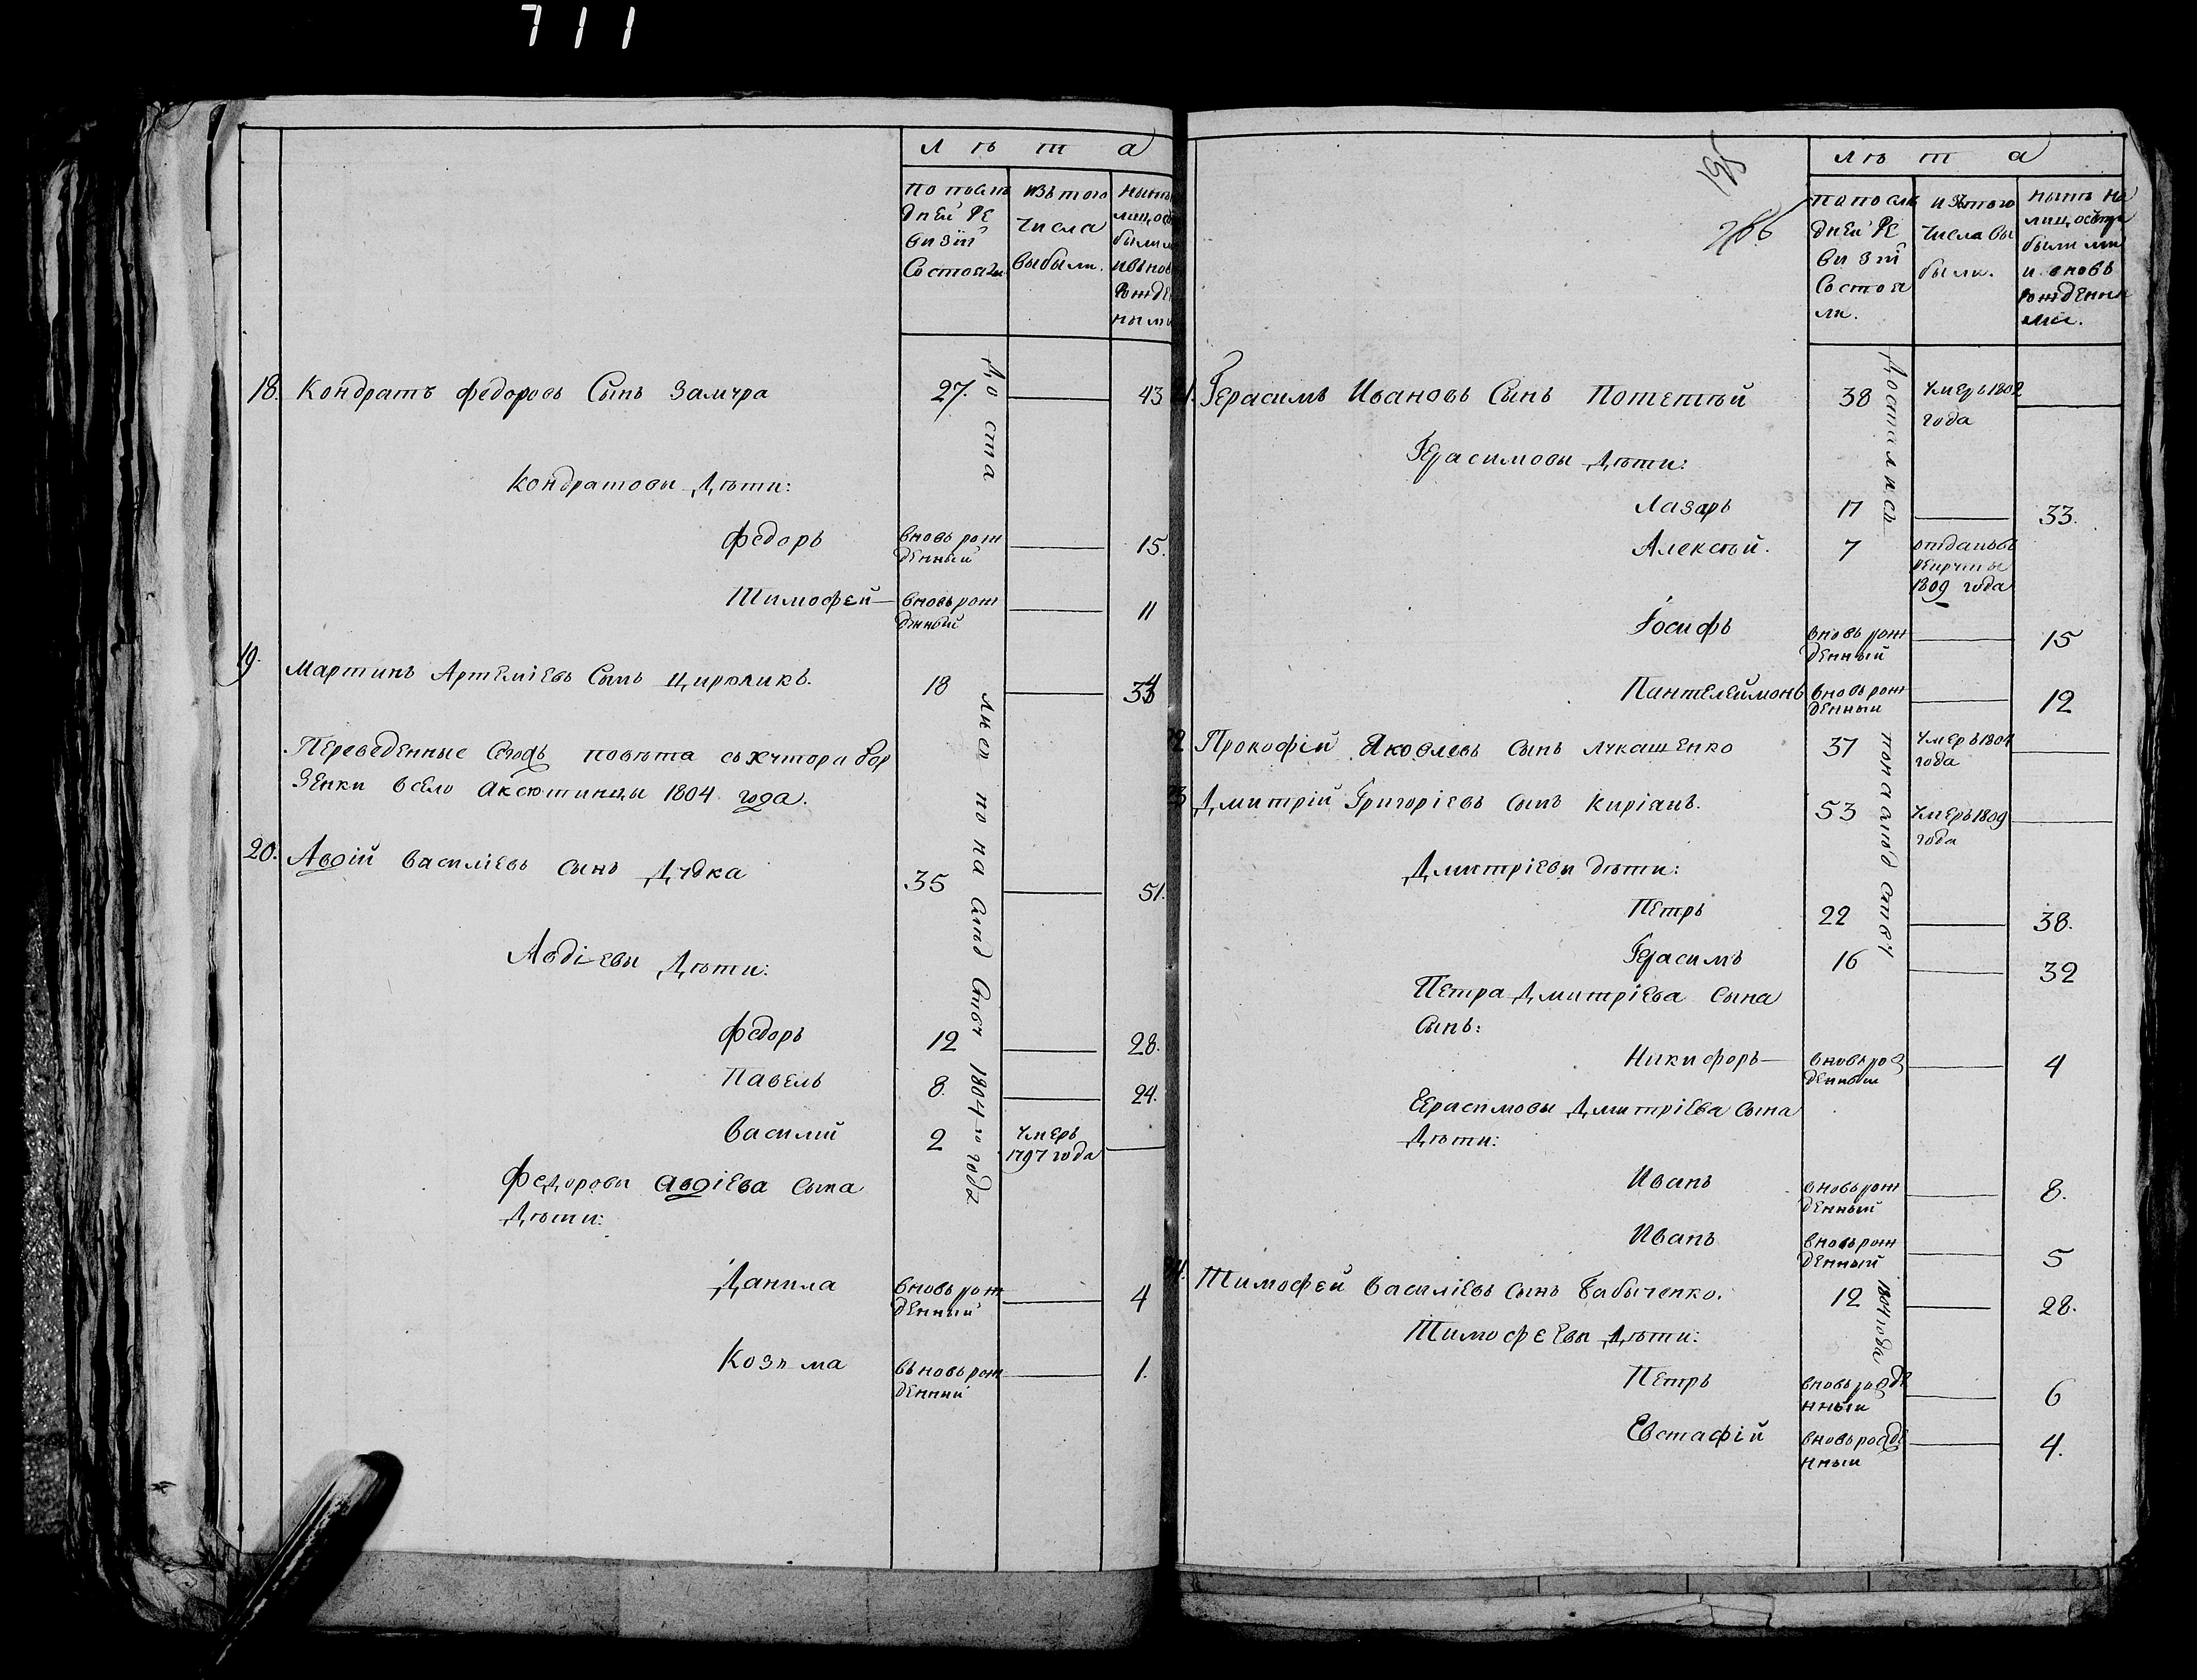 711
Л ѣ т а
По послѣ
дней Ре
визіи
Состояли
изъ того
числа
выбыли.
ныне
лиц. остъ
были ли
и внов
рожде
ными
До ста
18. Кондратъ Федоровъ Сынъ Замура 27. 43
Кондратовы Дѣти:
Федоръ вновь рож
денный 15.
Тимофей вновь рож
денный 11
19. Мартинъ Артеміевъ Сынъ Цируликъ. 18
лися по на
Переведенные повѣта съ хутора Бор
зенки всело Аксютинцы 1804 года.
20. Авдій Василіевъ сынъ Дудка 35 51.
Авдіевы Дѣти:
Федоръ 12 28.
Павелъ 8. 24.
1804-го года
Василій 2 Умеръ
1797 года
Федоровы Авдіева сына
Дѣти:
Данила вновь рож
денный 4
Козьма вьновь рож
денный 1.
195
266
Л ѣ т а
по послѣ
дней Ре
визіи
Состоя
ли.
изъ того
числа вы
были.
нынѣ на
лиц. остъ
были ли
и вновь
рожденны
ми.
Достались
Герасимъ Ивановъ Сынъ Потетѣй 38 Умеръ 1802
года
Герасимовы Дѣти:
Лазарь 17 33.
Алексѣй. 7 отданъ въ
рекруты
1809 года
Іосифъ вновь рож
денный 15
Пантелеймонъ вновь рож
денный 12
2 Прокофій Яковлевъ Сынъ Лукашенко 37 Умеръ 1804
года
3 Дмитрій Григоріевъ сынъ Киріанъ. 53 Умеръ 1809
года
Дмитріевы дѣти:
Петръ 22 38.
Герасимъ 16 32
Петра Дмитріева Сына
Сынъ:
Никифоръ вновь рож
денный 4
Герасимовы Дмитріева Сына
Дѣти:
Иванъ вновь рож
денный 8.
Иванъ вновь рож
денный 5
Тимофей Василіевъ сынъ Бабыченко. 12 28.
1804 года
Тимофеевы Дѣти:
Петръ вновь рожде
нный 6
Евстафій вновь рожде
нный 4.